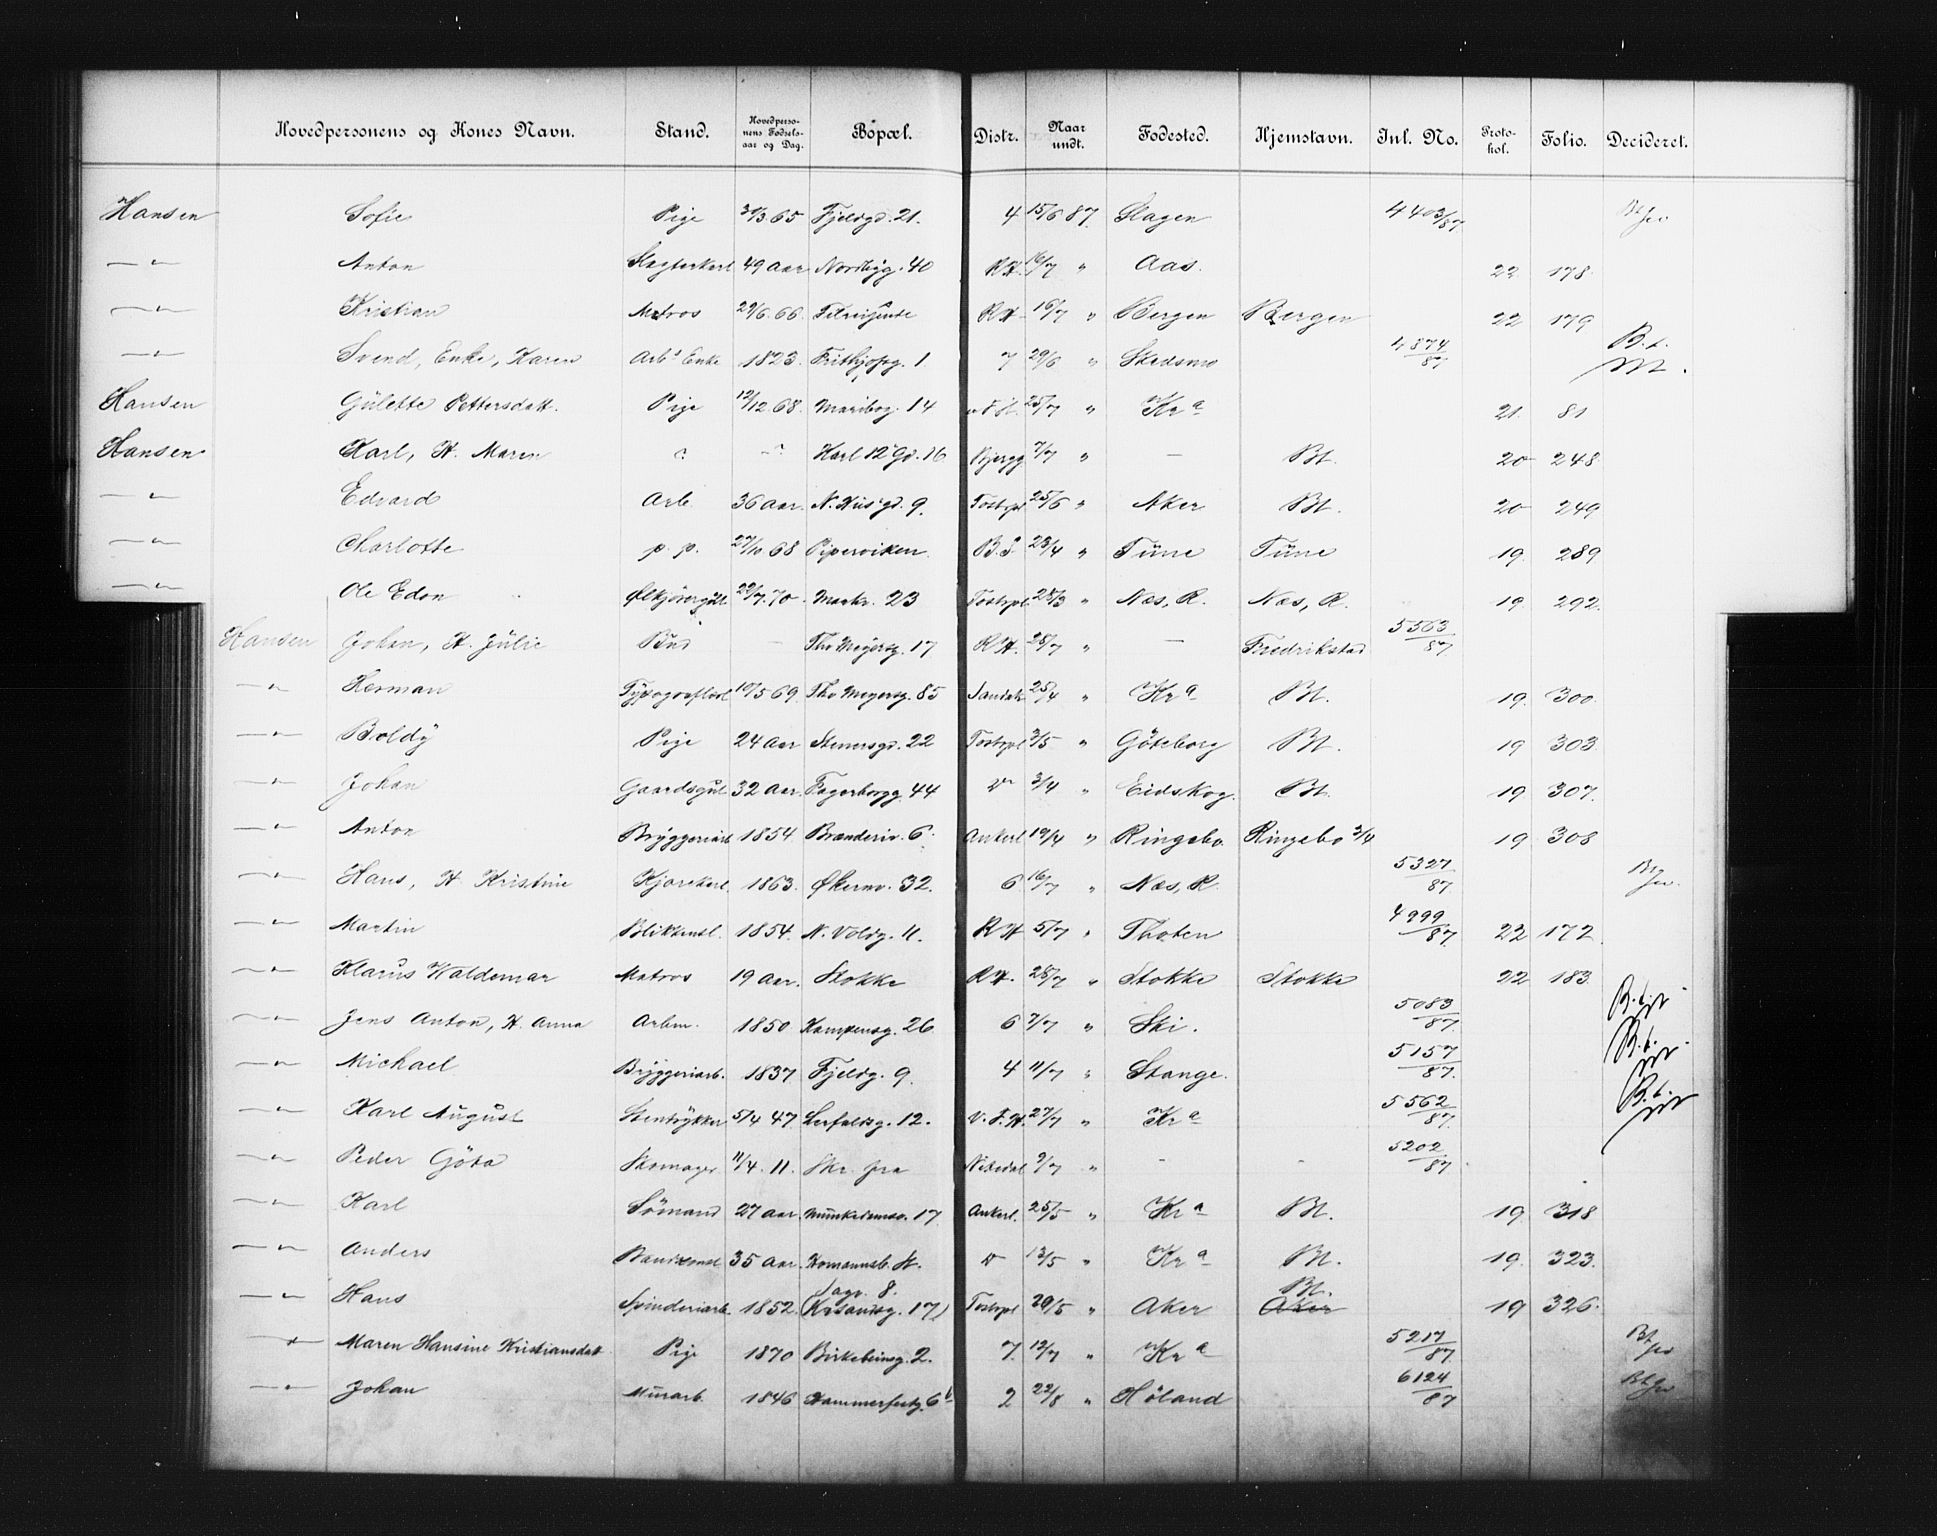 Hovedpersonens og Kones Navn. Stand. Hovedpersonens Fødselsaar og Dag. Bopæl. Distr. Naar undt. Fødested. Hjemstavn. Inl. No. Protokol. Folio. Decideret.
Hansen Sofie Pige 3/3 65 Fjeldgd. 21. 4 15/6 87. Slagen 4403/87.
—"— Anton Slagterkarl 49 Aar Nordbyg. 40 RH. 16/7 " Aas. 22 178.
—"— Kristian Matros 29/6. 66 RH 16/7 " Bergen Bergen 22 179
—"— Svend, Enke, Karen Arb.s Enke 1823. Frithjofsg. 1. 7 29/6 " Skedsmo 4874/87 B.t.
Hansen Gülette Pettersdatt. Pige 12/12. 68. Maribog. 14 25/7 " Kra 21. 81
Hansen Karl, H. Maren ? —? Karl 12 Gd. 16 Bjergg 7/7 " — Bt. 20 248
—"— Edvard Arb. 36 Aar. N. Husgd. 9. Tostrpl 25/6 " Aker Bt. 20 249
—"— Charlotte p. p. 27/10 68 Piperviken B.S 23/4 " Tüne Tüne 19. 289
—"— Ole Edon Ølkjørergüt 29/7. 70. Markv. 23 Tostrpl 28/3 " Næs, R. Næs, R. 19. 292.
Hansen Johan, H. Jülie Bud — Thv Meyersg. 17 RH. 28/7 " — Fredrikstad 5563/87
—"— Herman Typograflærl 10/5 69. Thv Meyersg. 85 Sandak 25/4 " Kra Bt. 19. 300.
—"— Boldÿ Pige 24 Aar Stenersgd. 22 Tostrpl 3/5 " Göteborg Bt. 19 303.
—"— Johan Gaardsgüt 32 Aar. Fagerborgg. 44 V 3/4 " Eidskog. Bt. 19 307.
—"— Anton Brÿggeriarb 1854. Brænderiv. 6. Ankerl 19/4 " Ringebo Ringebo 3/4 19. 308
—"— Hans, H. Kristine Kjørekarl. 1863. Økernv. 32. 6 16/7 " Næs, R. 5327/87
—"— Martin Blikkensl. 1854. N. Voldg. 11. RH 5/7 " Thoten 4999/87. 22 172.
—"— Klaüs Waldemar Matros 19 Aar. Stokke RH. 28/7 " Stokke Stokke 22 183
—"— Jens Anton, H. Anna Arbm. 1850. Kampensg. 26. 6 7/7 " Ski. 5083/87. B.t.
—"— Michael Brÿggeriarb. 1837 Fjeldg. 9. 4 11/7 " Stange. 5157/87. B.t.
—"— Karl Aügüst Stentrÿkker 5/4 47. Lerfaldsg. 12. V.F.H. 27/7 " Kra 5562/87. B.t.
—"— Peder Göta Skomager 11/4. 11. Skr. fra Nitedal 9/7 " - - 5202/87.
—"— Karl Sömand 27 Aar. Munkedamsv. 17. Ankerl. 25/5 " Kra Bt. 19. 318
—"— Anders 35 Aar. Homannsb. St. V 13/5 " Kra Bt. 19. 323.
Jagv. 8. Bt.
—"— Hans Spinderiarb. 1852. (Krsandsg. 17) Tostrpl 20/5 " Aker Aker 19 326.
—"— Maren Hansine Kristiansdatt Pige 1870 Birkebeinsg. 2. 7. 12/7 " Kra 5217/87. Bt
—"— Johan Murarb. 1846 Hammerfestg. 6b 2 22/8 " Höland 6124/87 Bt